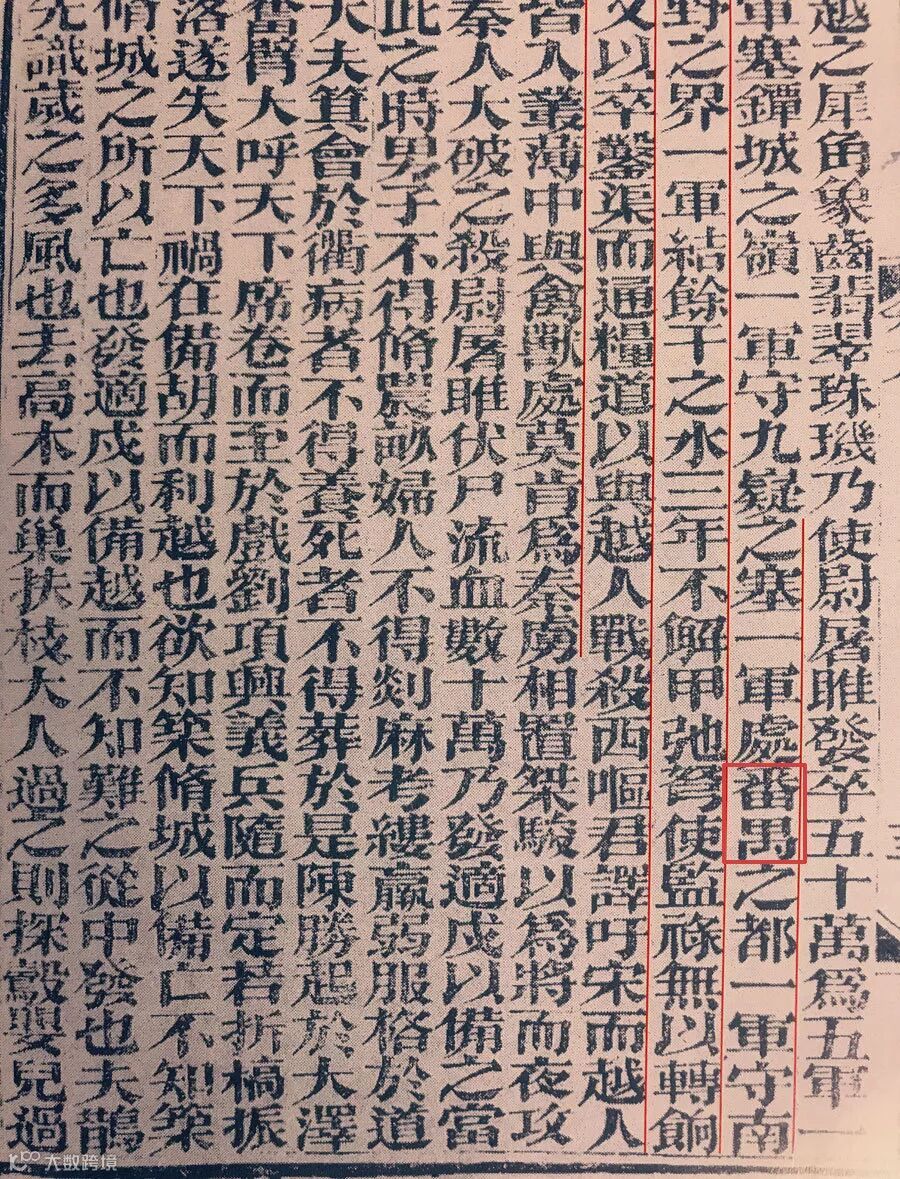 越之犀角象齒翡翠珠璣乃使尉屠睢發卒五十萬爲五軍一
軍塞鐔城之嶺一軍守九嶷之塞一軍處番禺之都一軍守南
野之界一軍結餘干之水三年不解甲弛弩使監祿無以轉餉
又以卒鑿渠而通糧道以與越人戰殺西嘔君譯吁宋而越人
皆入叢薄中與禽獸處莫肯爲秦虜相置桀駿以爲將而夜攻
秦人大破之殺尉屠睢伏尸流血數十萬乃發適戍以備之當
此之時男子不得脩農畝婦人不得剡麻考縷羸弱服格於道
大夫箕會於衢病者不得養死者不得葬於是陳勝起於大澤
奮臂大呼天下席卷而至於戲劉項興義兵隨而定若折槁振
落遂失天下禍在備胡而利越也欲知築脩城以備亡不知築
脩城之所以亡也發適戍以備越而不知難之從中發也夫鵲
先識歲之多風也去高木而巢扶枝大人過之則探鷇嬰兒過
大数跨境